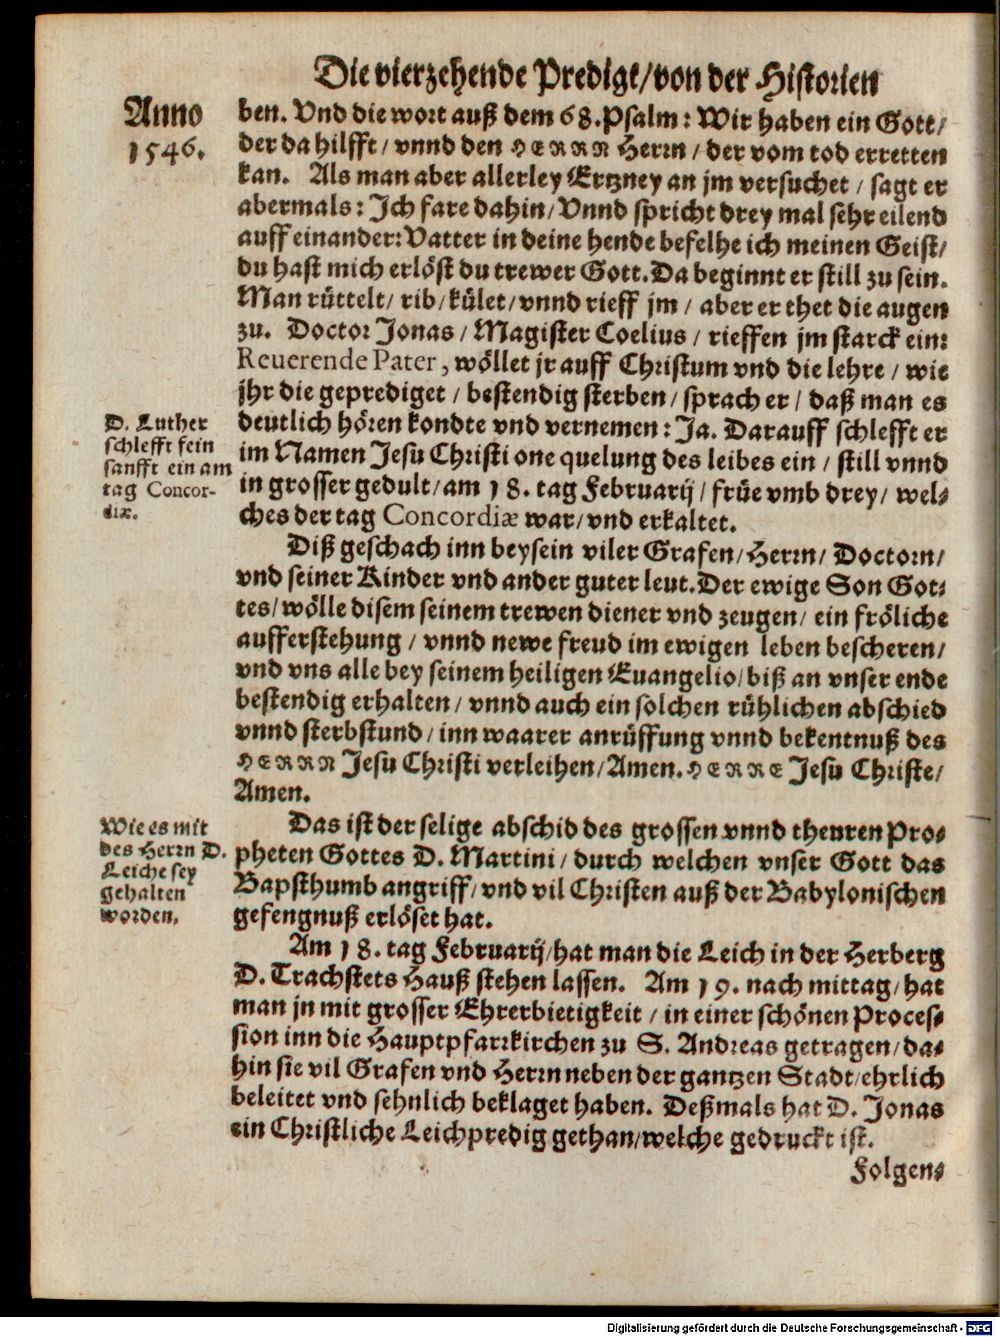 Die vierzehende Predigt/von der Historien
Anno
1546.
ben. Vnd die wort auß dem 68.Psalm: Wir haben ein Gott/
der da hilfft/ vnnd den HERRN Herrn/ der vom tod erretten
kan. Als man aber allerley Ertzney an jm versuchet/ sagt er
abermals: Ich fare dahin/ Vnnd spricht drey mal sehr eilend
auff einander: Vatter in deine hende befelhe ich meinen Geist/
du hast mich erlöst du trewer Gott. Da beginnt er still zu sein.
Man rüttelt/ rib/ kület/ vnnd rieff jm/ aber er thet die augen
zu. Doctor Jonas/ Magister Coelius/ rieffen jm starck ein:
Reuerende Pater, wöllet jr auff Christum vnd die lehre/ wie
jhr die geprediget/ bestendig sterben/ sprach er/ daß man es
deutlich hören kondte vnd vernemen: Ja. Darauff schlefft er
im Namen Jesu Christi one quelung des leibes ein/ still vnnd
in grosser gedult/ am 18. tag Februarij/ früe vmb drey/ wel-
ches der tag Concordiæ war/ vnd erkaltet.
D. Luther
schlefft fein
sanfft ein am
tag Concor-
diæ.
Diß geschach inn beysein viler Grafen/ Herrn/ Doctorn/
vnd seiner Kinder vnd ander guter leut. Der ewige Son Got-
tes/ wölle disem seinem trewen diener vnd zeugen/ ein fröliche
aufferstehung/ vnnd newe freud im ewigen leben bescheren/
vnd vns alle bey seinem heiligen Euangelio/ biß an vnser ende
bestendig erhalten/ vnnd auch ein solchen rühlichen abschied
vnnd sterbstund/ inn waarer anrüffung vnnd bekentnuß des
HERRN Jesu Christi verleihen/ Amen. HERRE Jesu Christe/
Amen.
Das ist der selige abschid des grossen vnnd theuren Pro-
pheten Gottes D. Martini/ durch welchen vnser Gott das
Bapsthumb angriff/ vnd vil Christen auß der Babylonischen
gefengnuß erlöset hat.
Wie es mit
des Herrn D.
Leiche sey
gehalten
worden.
Am 18. tag Februarij/ hat man die Leich in der Herberg
D. Trachstets Hauß stehen lassen. Am 19. nach mittag/ hat
man jn mit grosser Ehrerbietigkeit/ in einer schönen Proces-
sion inn die Hauptpfarrkirchen zu S. Andreas getragen/ da-
hin sie vil Grafen vnd Herrn neben der gantzen Stadt/ ehrlich
beleitet vnd sehnlich beklaget haben. Deßmals hat D. Jonas
ein Christliche Leichpredig gethan/ welche gedruckt ist.
Folgen-
Digitalisierung gefördert durch die Deutsche Forschungsgemeinschaft - DFG